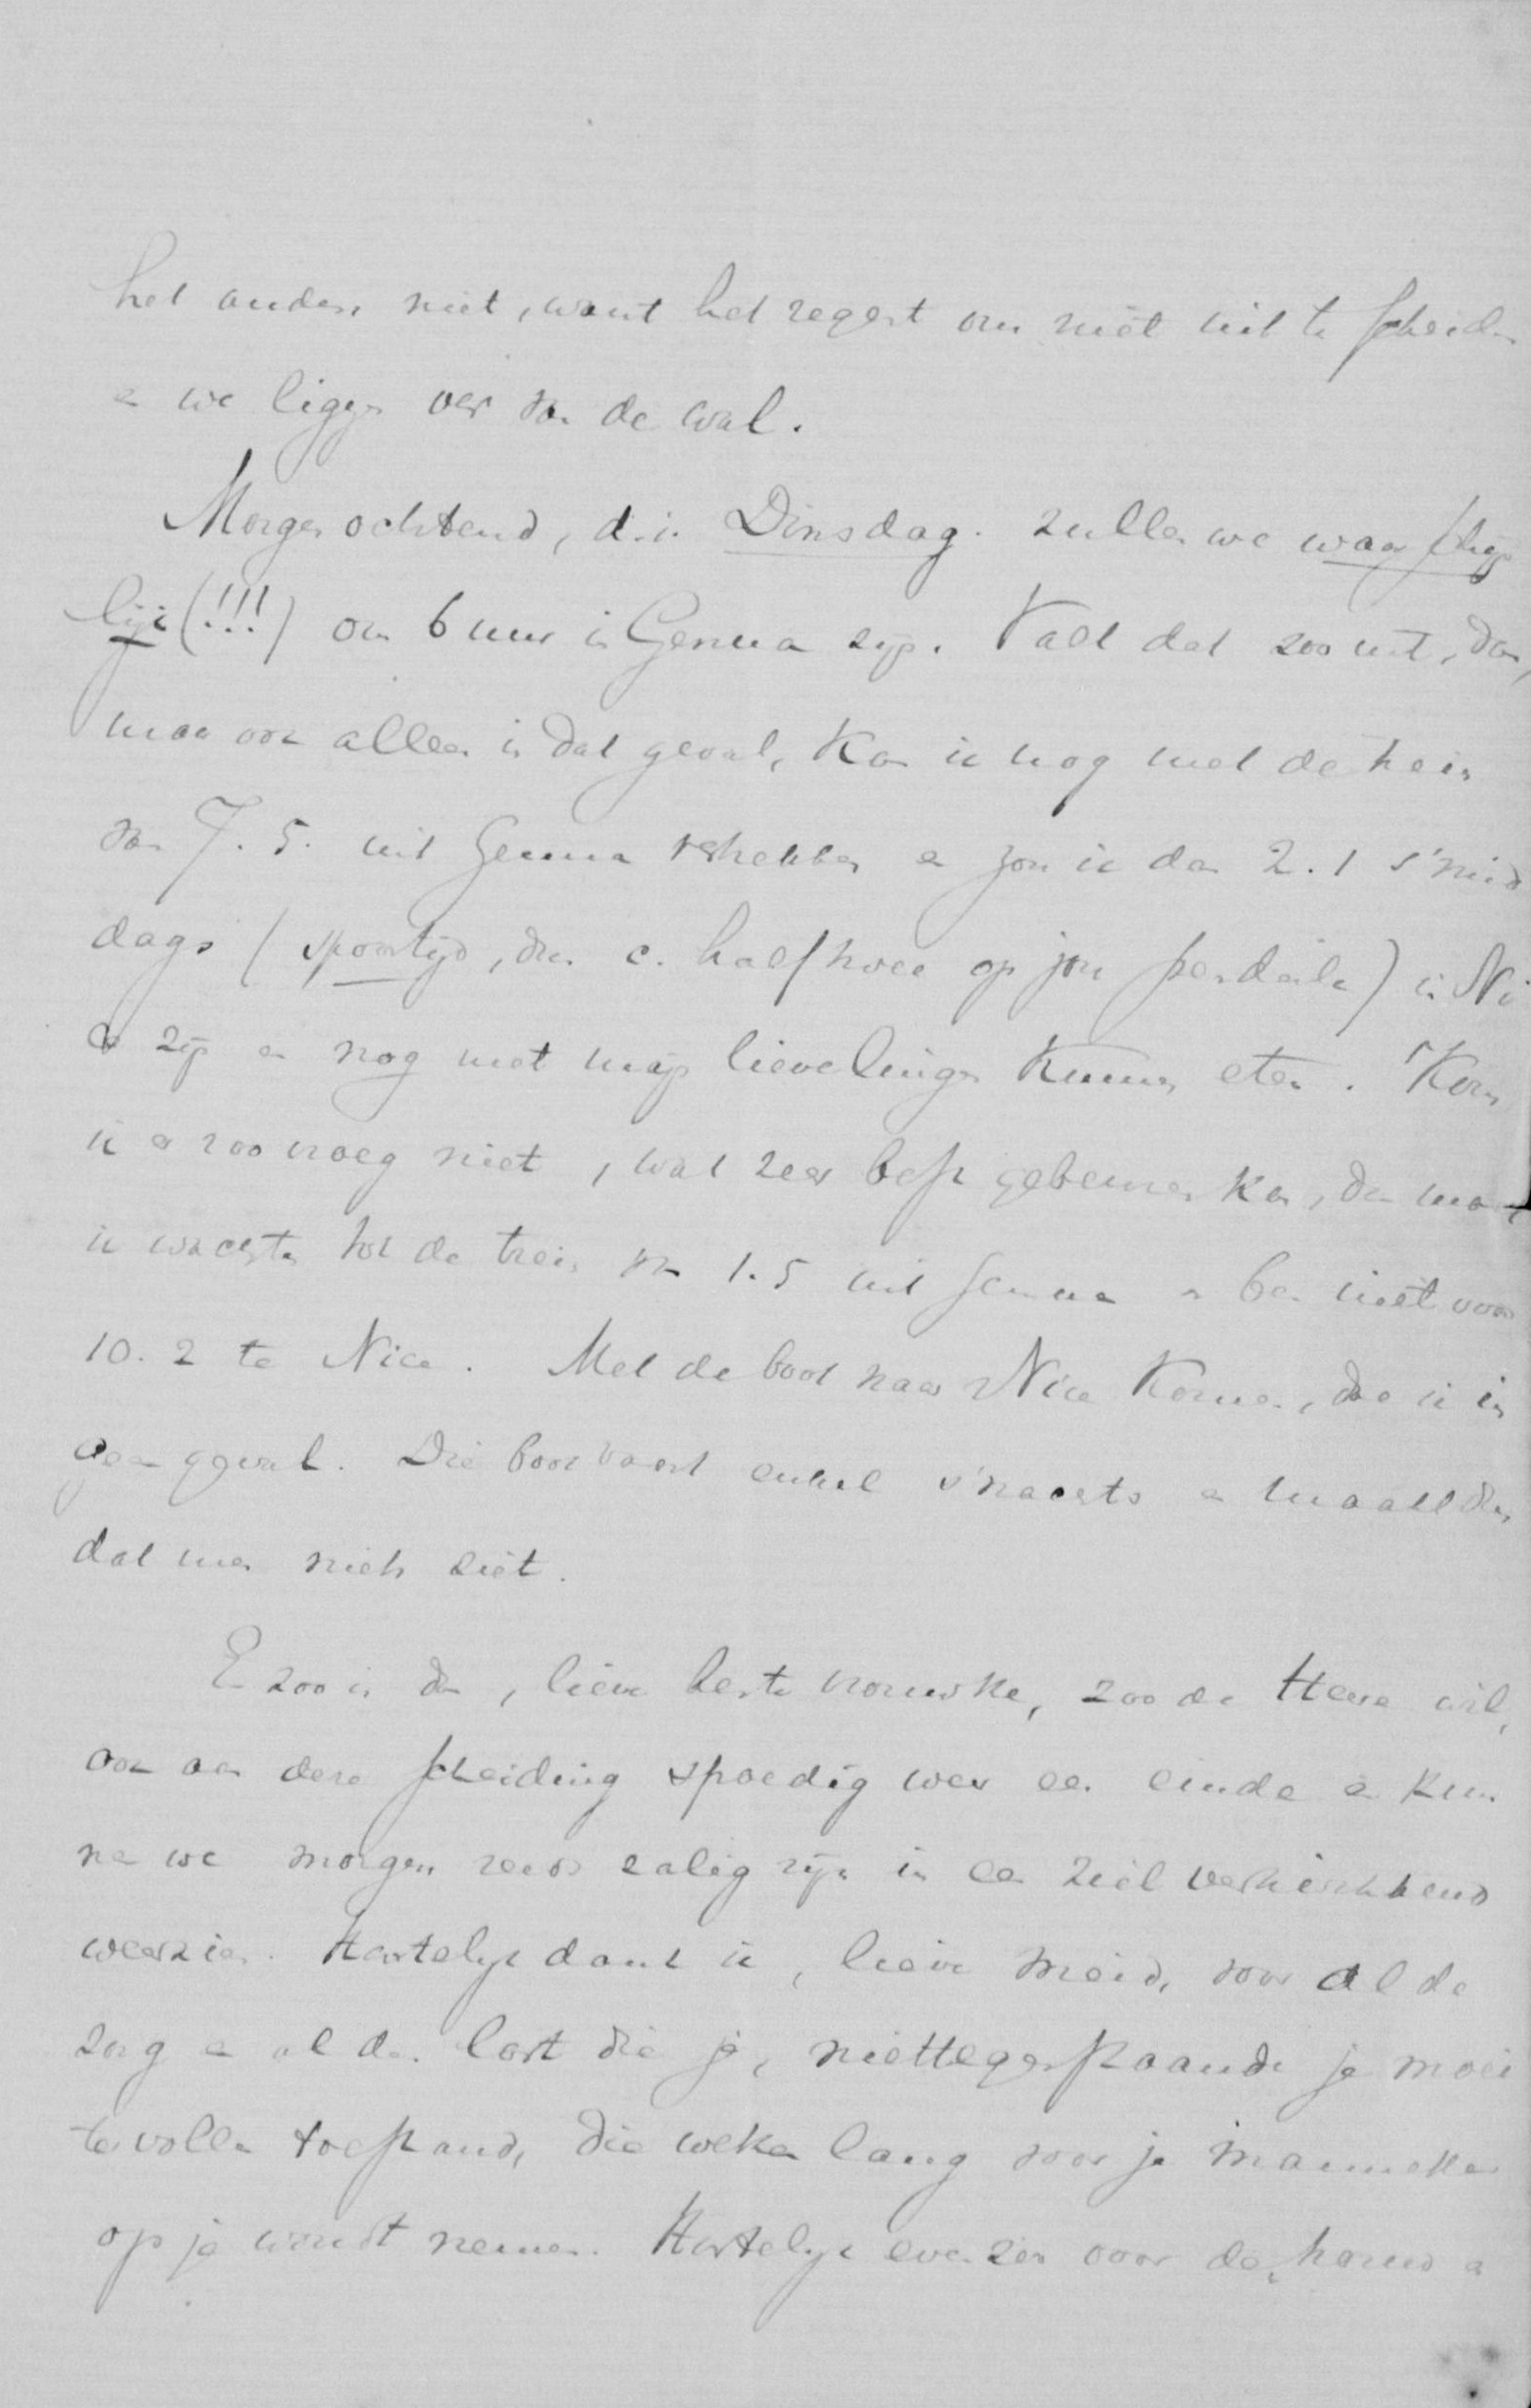 het anders niet, want het regent om niet uit te scheiden
en we liggen ver van de wal.
Morgen ochtend, d.i. Dinsdag. zullen we waarschijn
lijk (!!!) om 6 uur in Genua zijn. Valt dat zoo uit, dan,
maar ook alleen in dat geval, kan ik nog met de trein
van 7.5. uit Genua vertrekken en zou ik dan 2.1 s'mid
dags (spoortijd, dus c. half twee op jou pendule) in Ni
ce zijn en nog met mijn lievelingen kunnen eten. Kom
ik er zoo vroeg niet, wat zeer best gebeuren kan, dan moet
ik wachten tot de trein van 1.5 uit Genua en ben niet voor
10.2 te Nice. Met de boot naar Nice komen, doe ik in
geen geval. Die boot vaart enkel s'nachts en maakt dus
dat men niets ziet.
En zoo is dan, lieve beste vrouwke, zoo de Heere wil,
ook aan deze scheiding spoedig weer een einde en kun
nen we morgen reeds zalig zijn in een zielverkwikkend
weerzien. Hartelijk dank ik, lieve meid, voor al de
zorg en al de last die je, niettegenstaande je moei
tevollen toestand, die weken lang voor je manneke
op je woudt nemen. Hartelijk evenzeer voor de trouw en